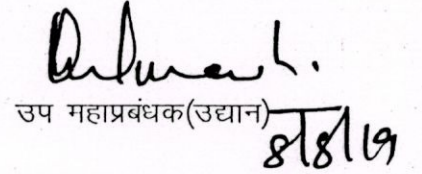 उप महाप्रबंधक(उद्यान)
8/8/19